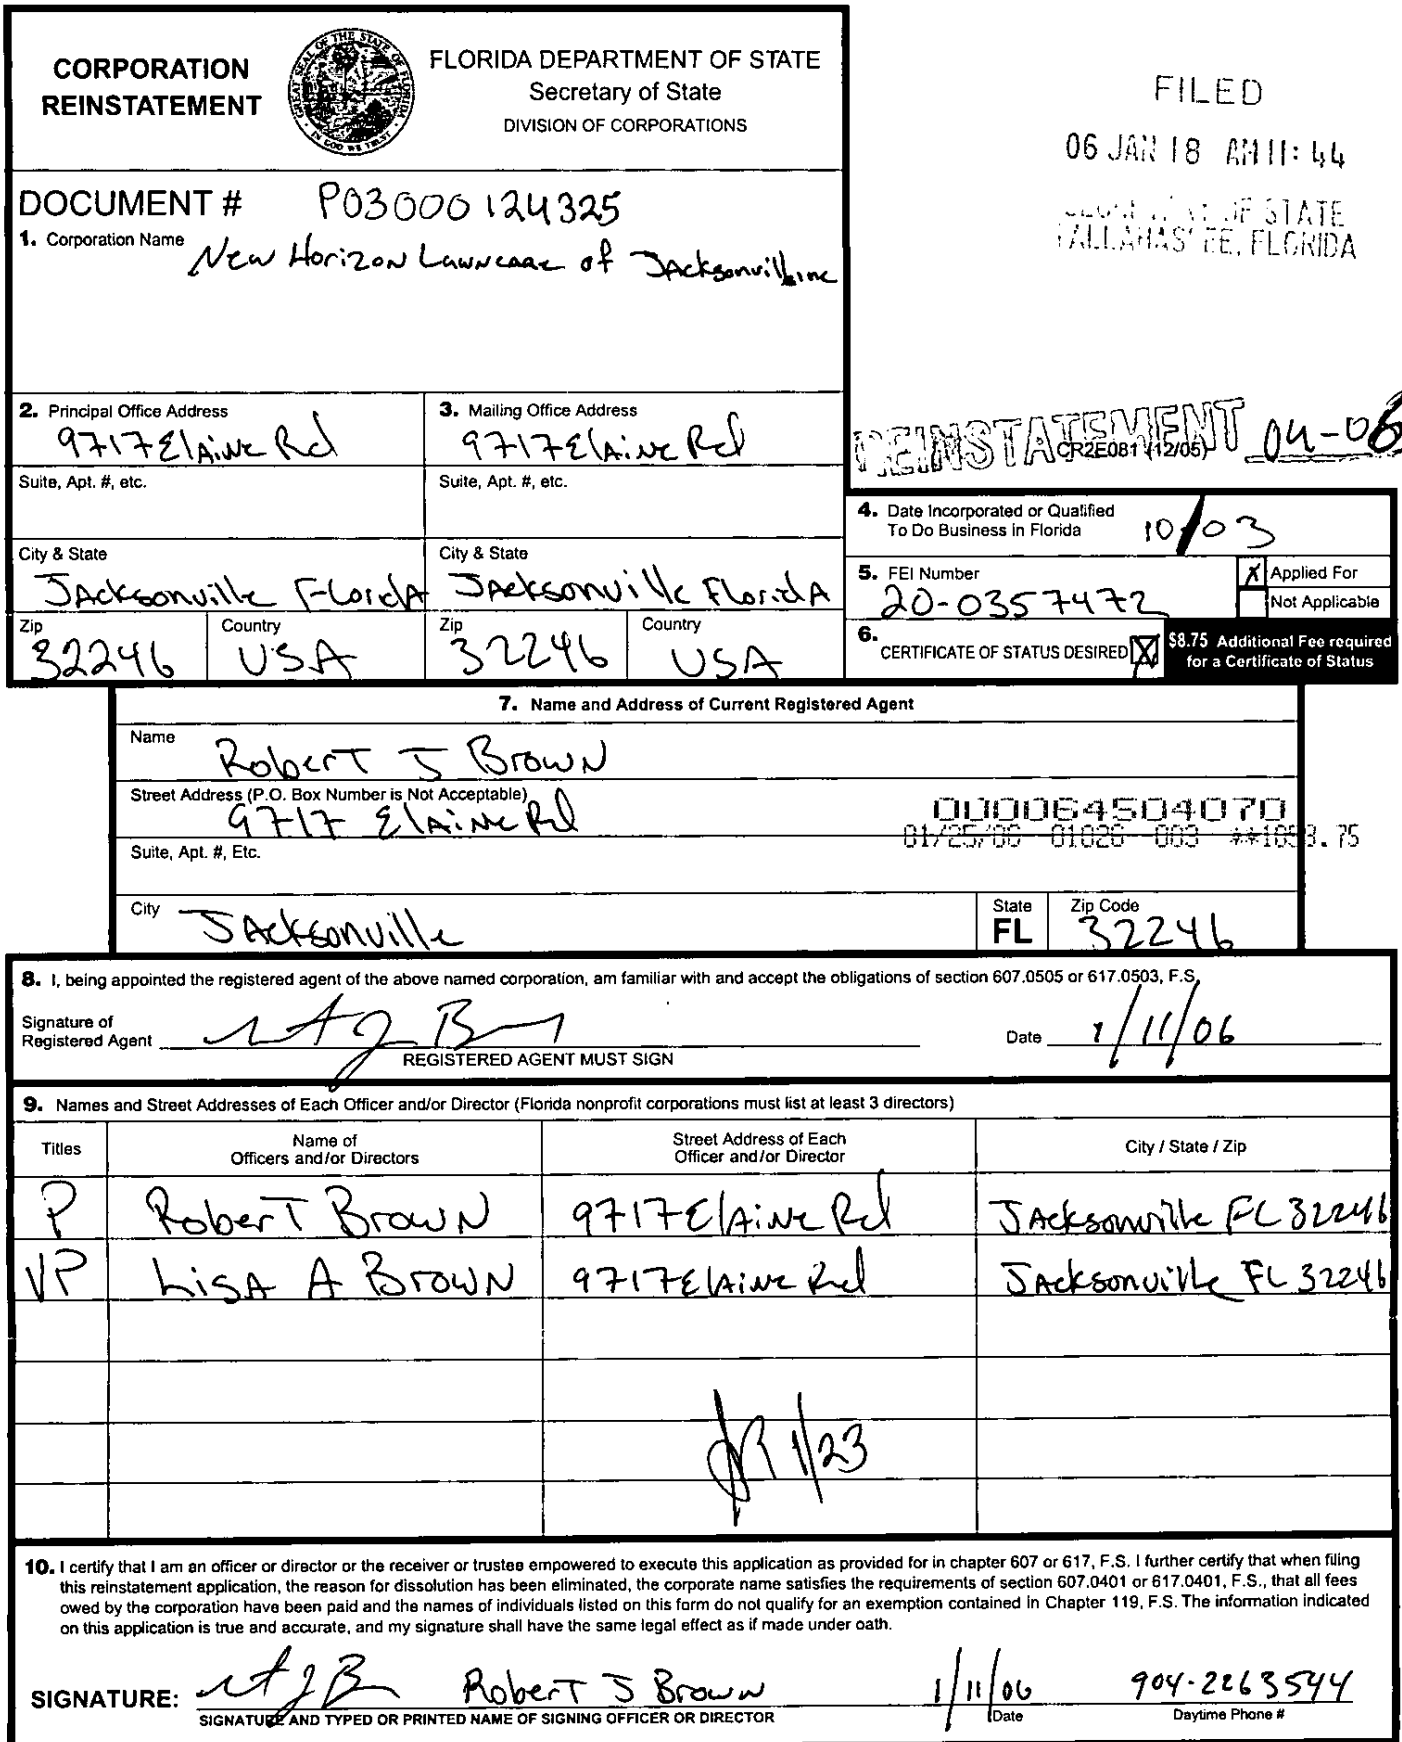 CORPORATION
REINSTATEMENT
GREAT SEAL OF THE STATE OF FLORIDA
IN GOD WE TRUST
FLORIDA DEPARTMENT OF STATE
Secretary of State
DIVISION OF CORPORATIONS
FILED
06 JAN 18 AM 11:44
OF STATE
TALLAHASSEE, FLORIDA
DOCUMENT # P03000124325
1. Corporation Name
New Horizon Lawncare of Jacksonville inc
2. Principal Office Address
9717 Elaine Rd
3. Mailing Office Address
9717 Elaine Rd
REINSTATEMENT 04-06
CR2E081 (12/05)
Suite, Apt. #, etc.
Suite, Apt. #, etc.
4. Date Incorporated or Qualified
To Do Business in Florida 10/03
City & State
Jacksonville Florida
City & State
Jacksonville Florida
5. FEI Number
20-0357472
X Applied For
Not Applicable
Zip
32246
Country
USA
Zip
32246
Country
USA
6. CERTIFICATE OF STATUS DESIRED X
$8.75 Additional Fee required
for a Certificate of Status
7. Name and Address of Current Registered Agent
Name
Robert J Brown
Street Address (P.O. Box Number is Not Acceptable)
9717 Elaine Rd
000064504070
01/25/06 01026 003 **1058.75
Suite, Apt. #, Etc.
City
Jacksonville
State
FL
Zip Code
32246
8. I, being appointed the registered agent of the above named corporation, am familiar with and accept the obligations of section 607.0505 or 617.0503, F.S.
Signature of
Registered Agent
Date 1/11/06
REGISTERED AGENT MUST SIGN
9. Names and Street Addresses of Each Officer and/or Director (Florida nonprofit corporations must list at least 3 directors)
Titles
Name of
Officers and/or Directors
Street Address of Each
Officer and/or Director
City / State / Zip
P Robert Brown 9717 Elaine Rd Jacksonville FL 32246
VP Lisa A Brown 9717 Elaine Rd Jacksonville FL 32246
1/23
10. I certify that I am an officer or director or the receiver or trustee empowered to execute this application as provided for in chapter 607 or 617, F.S. I further certify that when filing
this reinstatement application, the reason for dissolution has been eliminated, the corporate name satisfies the requirements of section 607.0401 or 617.0401, F.S., that all fees
owed by the corporation have been paid and the names of individuals listed on this form do not qualify for an exemption contained in Chapter 119, F.S. The information indicated
on this application is true and accurate, and my signature shall have the same legal effect as if made under oath.
SIGNATURE: Robert J Brown 1/11/06 904-2263544
SIGNATURE AND TYPED OR PRINTED NAME OF SIGNING OFFICER OR DIRECTOR
Date
Daytime Phone #